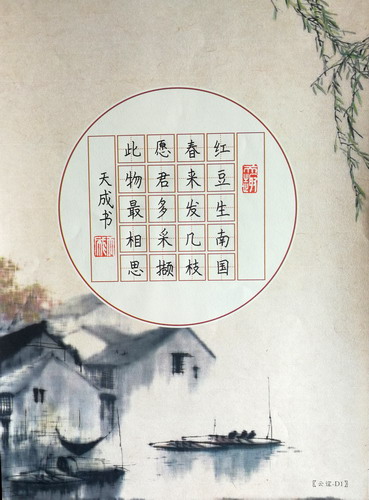 红豆生南国
春来发几枝
愿君多采撷
此物最相思
天成书
〖云谋-D1〗